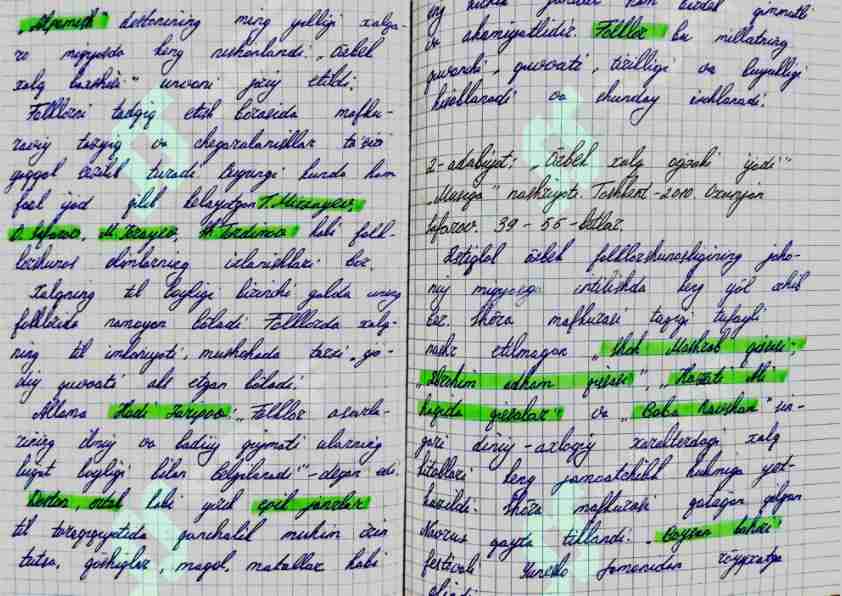 „Alpomish" dostonining ming yilligi xalqa-
ro miqyosda keng nishonlandi. „Özbek
xalq baxshisi" unvoni joriy etildi.
Folklorni tadqiq etish börasida mafku-
raviy tazyiq va chegaralanishlar ta'siri
yaqqol sezilib turadi. Buyungi kunda ham
faol ijod qilib kelayotgan T. Mirzayev,
O. Safarov, M. Jörayev, Sh. Turdimov kabi folk-
lorshunos olimlarning izlanishlari bor.
Xalqning til boyligi birinchi galda uning
folklorida namoyon böladi. Folklorda xalq-
ning til imkoniyati, mushohada tarzi, ijo-
diy quvvati aks etgan böladi.
Alloma Hodi Zaripov: „Folklor asarla-
rining ilmiy va badiiy qiymati ularning
lug'at boyligi bilan belgilanadi" - degan edi.
Doston, ertak kabi yirik epik janrlar
til taraqqiyotida qanchalik muhim örin
tutsa, qöshiqlar, maqol, matallar kabi
eng kichik janrlar ham xuddi qimmatli
va ahamiyatlidir. Folklor bu millatning
quvonchi, quvvati, tirikligi va buyukligi
hisoblanadi va shunday ishlanadi.
2-adabiyot: „Özbek xalq og'zaki ijodi"
„Musiqa" nashriyoti. Toshkent-2010. Oxunjon
Safarov. 39-55-betlar.
Istiqlol özbek folklorshunosligining jaho-
niy miqyosga intilishda keng yöl ochib
ber. Shöro mafkurasi tazyiqi tufayli
nashr etilmagan „Shoh Mashrab qissasi",
„Ibrohim adham qissasi", „Hazrati Ali
haqida qissalar" va „Bobo Ravshan" sin-
gari diniy-axloqiy xarakterdagi xalq
kitoblari keng jamoatchilik hukmiga yet-
kazildi. Shöro mafkurasi qatag'on qilgan
Navröz qayta tiklandi. „Boysun bahori"
festivali Yunesko tomonidan röyxatga
olindi.